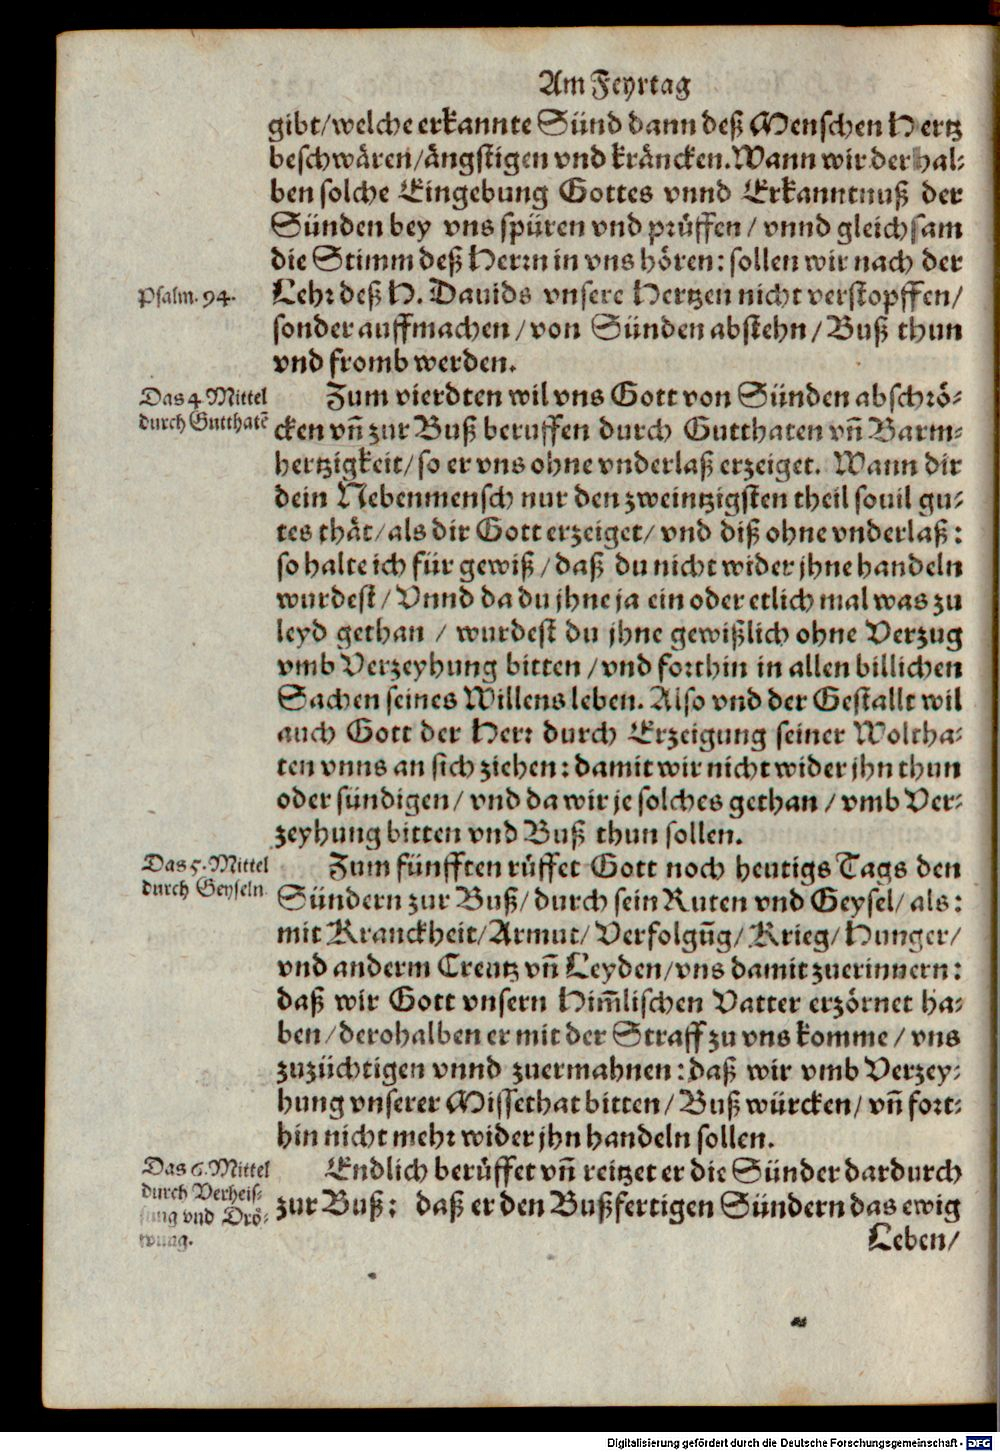 Am Feyrtag
gibt/welche erkannte Sünd dann deß Menschen Hertz
beschwären/ängstigen vnd kräncken. Wann wir derhal-
ben solche Eingebung Gottes vnnd Erkanntnuß der
Sünden bey vns spüren vnd prüffen/ vnnd gleichsam
die Stimm deß Herrn in vns hören: sollen wir nach der
Psalm. 94.
Lehr deß H. Dauids vnsere Hertzen nicht verstopffen/
sonder auffmachen/von Sünden abstehn/Buß thun
vnd fromb werden.
Das 4. Mittel
durch Gutthatē
Zum vierdten wil vns Gott von Sünden abschrö-
cken vn̄ zur Buß beruffen durch Gutthaten vn̄ Barm-
hertzigkeit/so er vns ohne vnderlaß erzeiget. Wann dir
dein Nebenmensch nur den zweintzigsten theil souil gu-
tes thät/als dir Gott erzeiget/ vnd diß ohne vnderlaß:
so halte ich für gewiß/daß du nicht wider jhne handeln
wurdest/Vnnd da du jhne ja ein oder etlich mal was zu
leyd gethan / wurdest du jhne gewißlich ohne Verzug
vmb Verzeyhung bitten/vnd forthin in allen billichen
Sachen seines Willens leben. Also vnd der Gestallt wil
auch Gott der Herr durch Erzeigung seiner Woltha-
ten vnns an sich ziehen: damit wir nicht wider jhn thun
oder sündigen/ vnd da wir je solches gethan / vmb Ver-
zeyhung bitten vnd Buß thun sollen.
Das 5. Mittel
durch Geyseln.
Zum fünfften rüffet Gott noch heutigs Tags den
Sündern zur Buß/ durch sein Ruten vnd Geysel/ als:
mit Kranckheit/Armut/Verfolgūg/Krieg/Hunger/
vnd anderm Creutz vn̄ Leyden/vns damit zuerinnern:
daß wir Gott vnsern Him̄lischen Vatter erzörnet ha-
ben/derohalben er mit der Straff zu vns komme/ vns
zuzüchtigen vnnd zuermahnen: daß wir vmb Verzey-
hung vnserer Missethat bitten/ Buß würcken/ vn̄ fort-
hin nicht mehr wider jhn handeln sollen.
Das 6. Mittel
durch Verheis-
sung vnd Drö-
wung.
Endlich berüffet vn̄ reitzet er die Sünder dardurch
zur Buß: daß er den Bußfertigen Sündern das ewig
Leben/
Digitalisierung gefördert durch die Deutsche Forschungsgemeinschaft - DFG